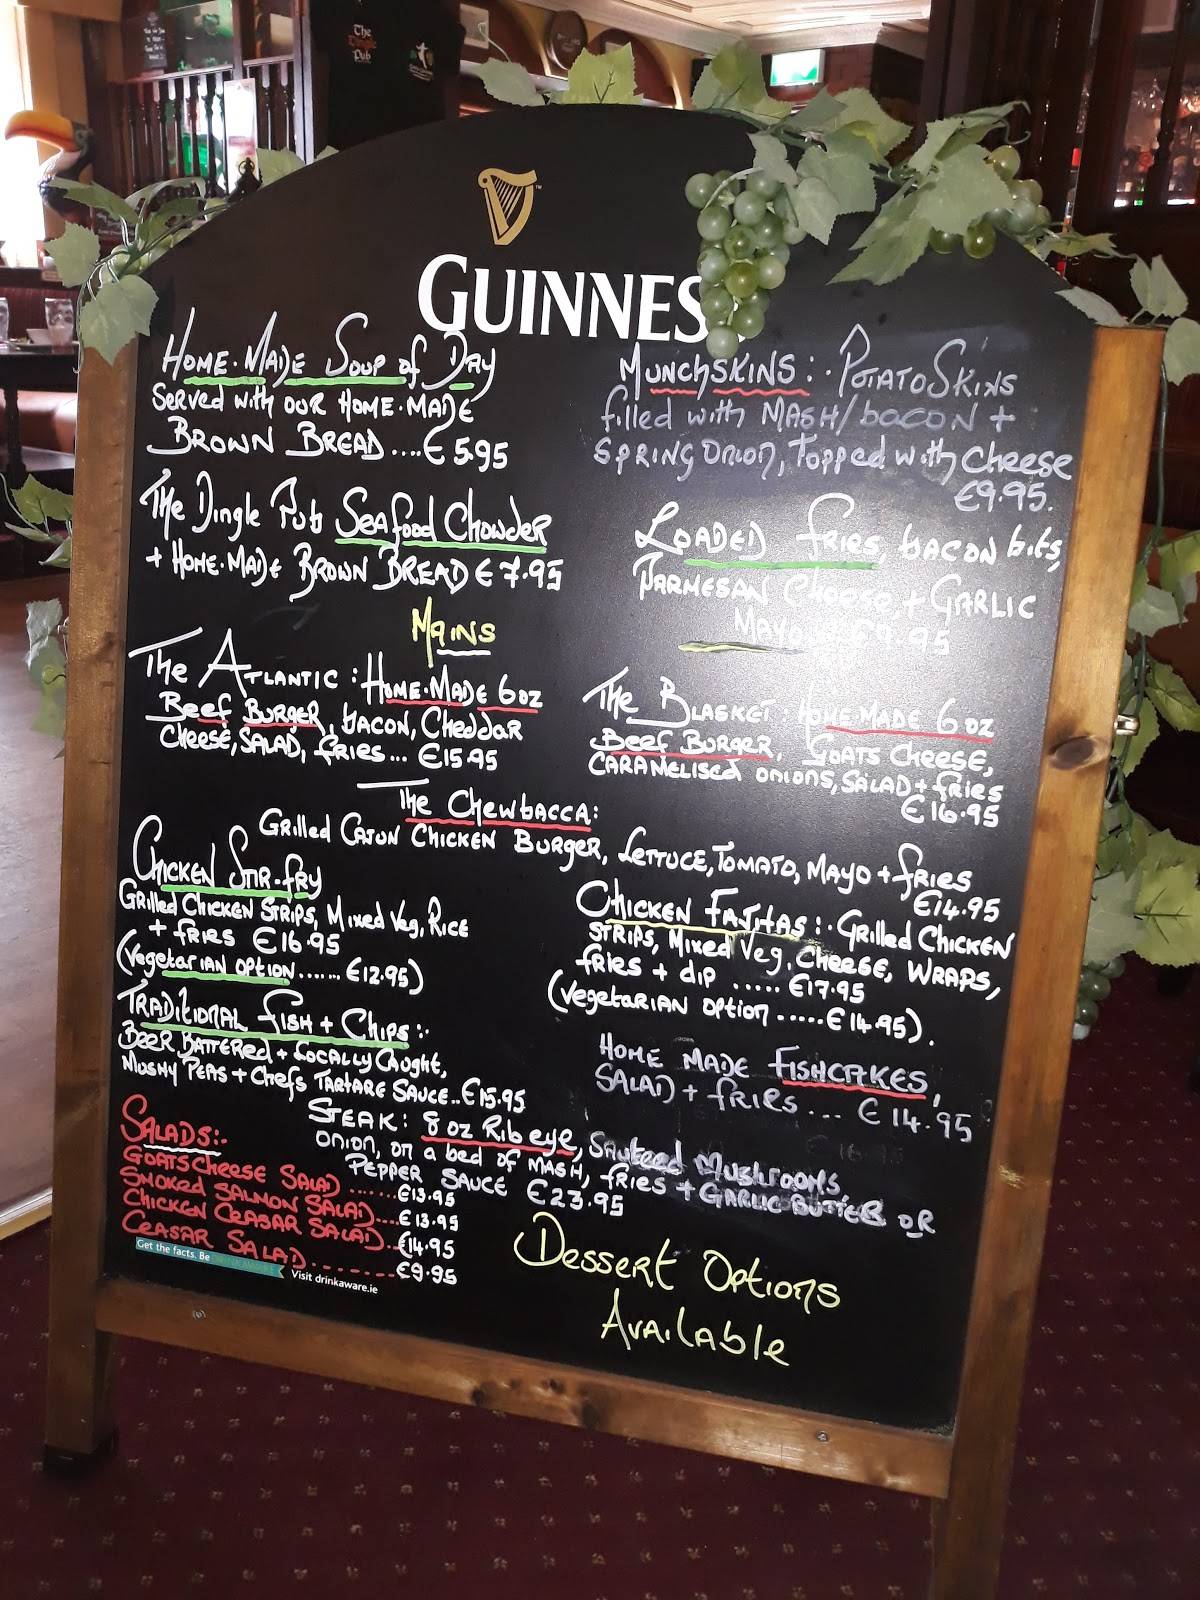 The
Dingle
Pub
GUINNES
HOME·MADE SOUP of DAY
SERVED WITH OUR HOME·MADE
BROWN BREAD....€5.95
THE DINGLE PUB SEAFOOD CHOWDER
+ HOME·MADE BROWN BREAD €7.95
MUNCHSKINS:· POTATO SKINS
filled with MASH/BACON +
SPRING ONION, TOPPED with CHEESE
€9.95.
LOADED FRIES, BACON bits,
PARMESAN CHEESE + GARLIC
MAYO
.95
MAINS
THE ATLANTIC: HOME·MADE 6oz
BEEF BURGER, BACON, CHEDDAR
CHEESE, SALAD, FRIES... €15.95
THE BLASKET: HOME MADE: 6oz
BEEF BURGER, GOATS CHEESE,
CARAMELISED ONIONS, SALAD + FRIES
€16.95
THE CHEWBACCA:
GRILLED CAJUN CHICKEN BURGER, LETTUCE, TOMATO, MAYO + FRIES
€14.95
CHICKEN STIR-FRY
GRILLED CHICKEN STRIPS, MIXED VEG, RICE
+ FRIES €16.95
(VEGETARIAN OPTION.......€12.95)
CHICKEN FAJITAS:· GRILLED CHICKEN
STRIPS, MIXED VEG, CHEESE, WRAPS,
FRIES + DIP ..... €17.95
(VEGETARIAN OPTION.....€14.95).
TRADITIONAL FISH + CHIPS:·
BEER BATTERED + LOCALLY CAUGHT,
MUSHY PEAS + CHEFS TARTARE SAUCE..€15.95
HOME MADE FISHCAKES,
SALAD + FRIES... €14.95
STEAK: 8oz RIB EYE, SAUTEED MUSHROOMS
ONION, ON A BED OF MASH, FRIES + GARLIC BUTTER OR
PEPPER SAUCE €23.95
SALADS:·
GOATS CHEESE SALAD......€13.95
SMOKED SALMON SALAD...€13.95
CHICKEN CEASAR SALAD..€14.95
CEASAR SALAD........€9.95
Get the facts. Be DRINKAWARE
Visit drinkaware.ie
DESSERT OPTIONS
AVAILABLE